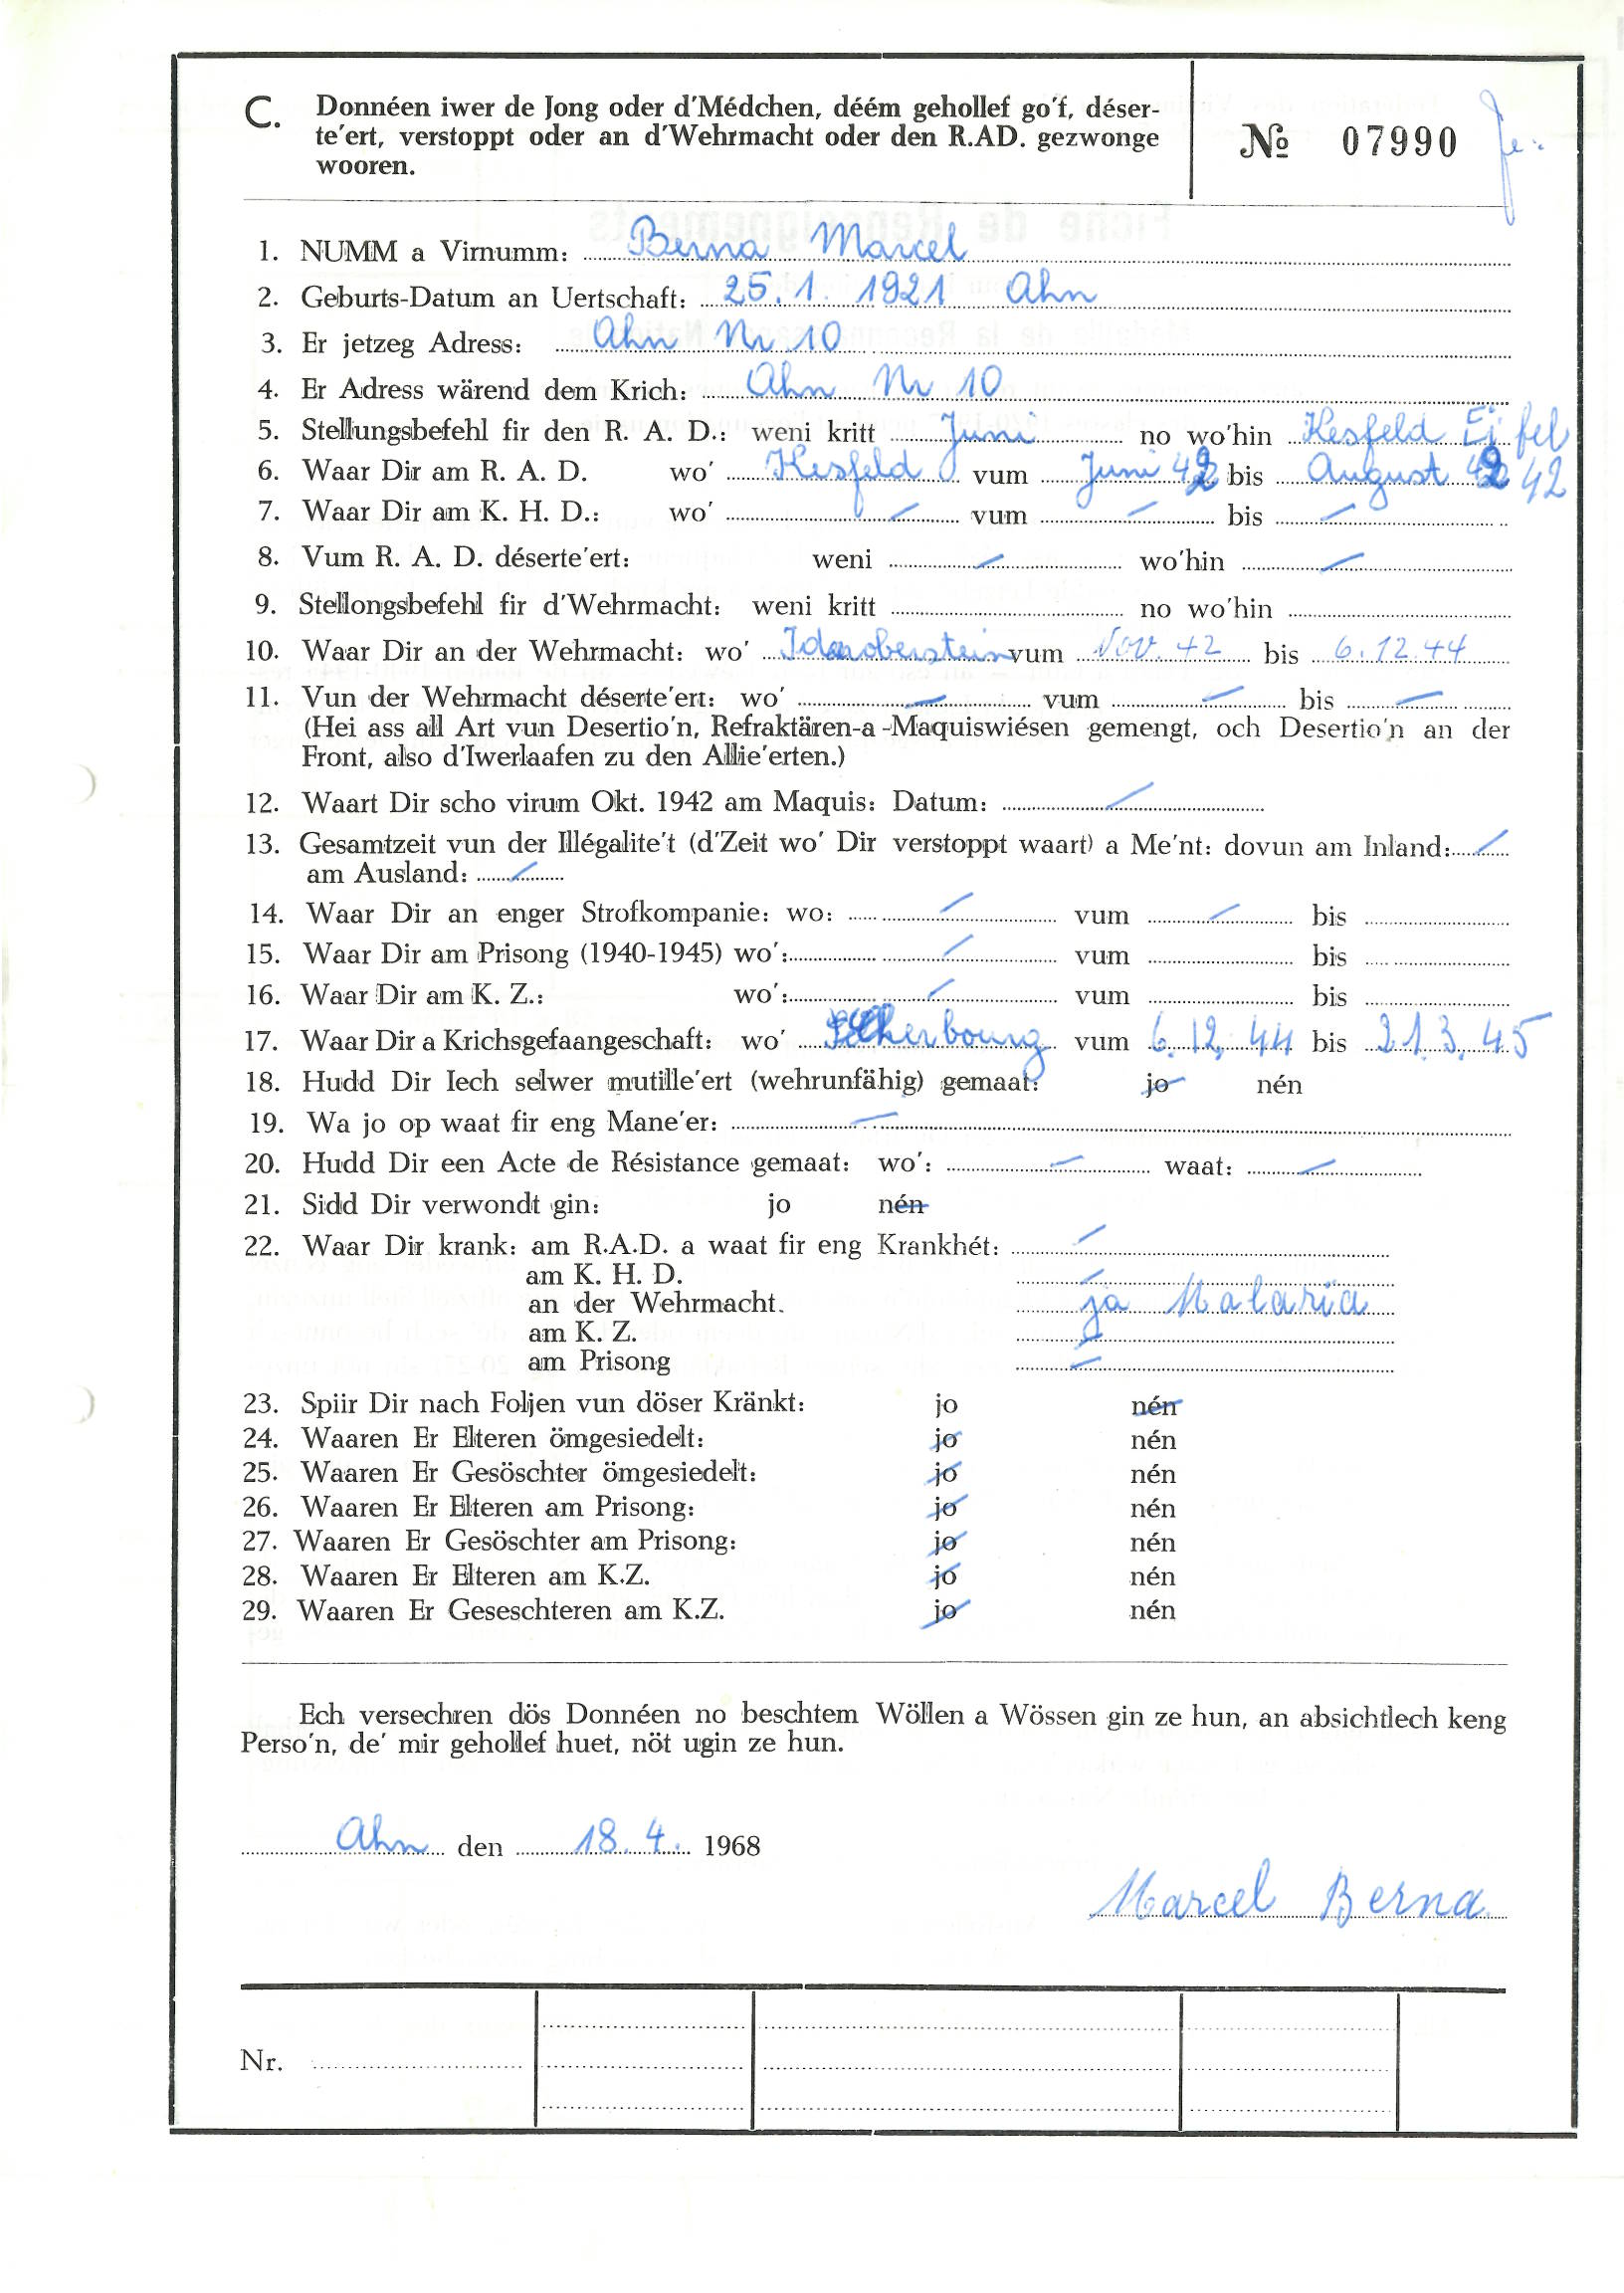 C. Donnéen iwer de Jong oder d'Médchen, déém gehollef go'f, déser-
te'ert, verstoppt oder an d'Wehrmacht oder den R.AD. gezwonge
wooren.
№ 07990
1. NUMM a Virnumm: Berna Marcel
2. Geburts-Datum an Uertschaft: 25.1.1921 Ahn
3. Er jetzeg Adress: Ahn Nr 10
4. Er Adress wärend dem Krich: Ahn Nr 10
5. Stellungsbefehl fir den R. A. D.: weni kritt Juni no wo'hin Kesfeld Eifel
6. Waar Dir am R. A. D. wo' Kesfeld vum Juni 42 bis August 42
7. Waar Dir am K. H. D.: wo' / vum / bis /
8. Vum R. A. D. déserte'ert: weni / wo'hin /
9. Stellongsbefehl fir d'Wehrmacht: weni kritt no wo'hin
10. Waar Dir an der Wehrmacht: wo' Idaroberstein vum Nov. 42 bis 6.12.44
11. Vun der Wehrmacht déserte'ert: wo' / vum / bis /
(Hei ass all Art vun Desertio'n, Refraktären-a-Maquiswiésen gemengt, och Desertio'n an der
Front, also d'Iwerlaafen zu den Allie'erten.)
12. Waart Dir scho virum Okt. 1942 am Maquis: Datum: /
13. Gesamtzeit vun der Illégalite't (d'Zeit wo' Dir verstoppt waart) a Me'nt: dovun am Inland: /
am Ausland: /
14. Waar Dir an enger Strofkompanie: wo: / vum / bis
15. Waar Dir am Prisong (1940-1945) wo': / vum bis
16. Waar Dir am K. Z.: wo': / vum bis
17. Waar Dir a Krichsgefaangeschaft: wo' Cherbourg vum 6.12.44 bis 31.3.45
18. Hudd Dir Iech selwer mutille'ert (wehrunfähig) gemaat: jo nén
19. Wa jo op waat fir eng Mane'er: /
20. Hudd Dir een Acte de Résistance gemaat: wo': / waat: /
21. Sidd Dir verwondt gin: jo nén
22. Waar Dir krank: am R.A.D. a waat fir eng Krankhét: /
am K. H. D. /
an der Wehrmacht. ja Malaria
am K. Z. /
am Prisong /
23. Spiir Dir nach Foljen vun döser Kränkt: jo nén
24. Waaren Er Elteren ömgesiedelt: jo nén
25. Waaren Er Gesöschter ömgesiedelt: jo nén
26. Waaren Er Elteren am Prisong: jo nén
27. Waaren Er Gesöschter am Prisong: jo nén
28. Waaren Er Elteren am K.Z. jo nén
29. Waaren Er Geseschteren am K.Z. jo nén
Ech versechren dös Donnéen no beschtem Wöllen a Wössen gin ze hun, an absichtlech keng
Perso'n, de' mir gehollef huet, nöt ugin ze hun.
Ahn den 18.4. 1968
Marcel Berna
Nr.